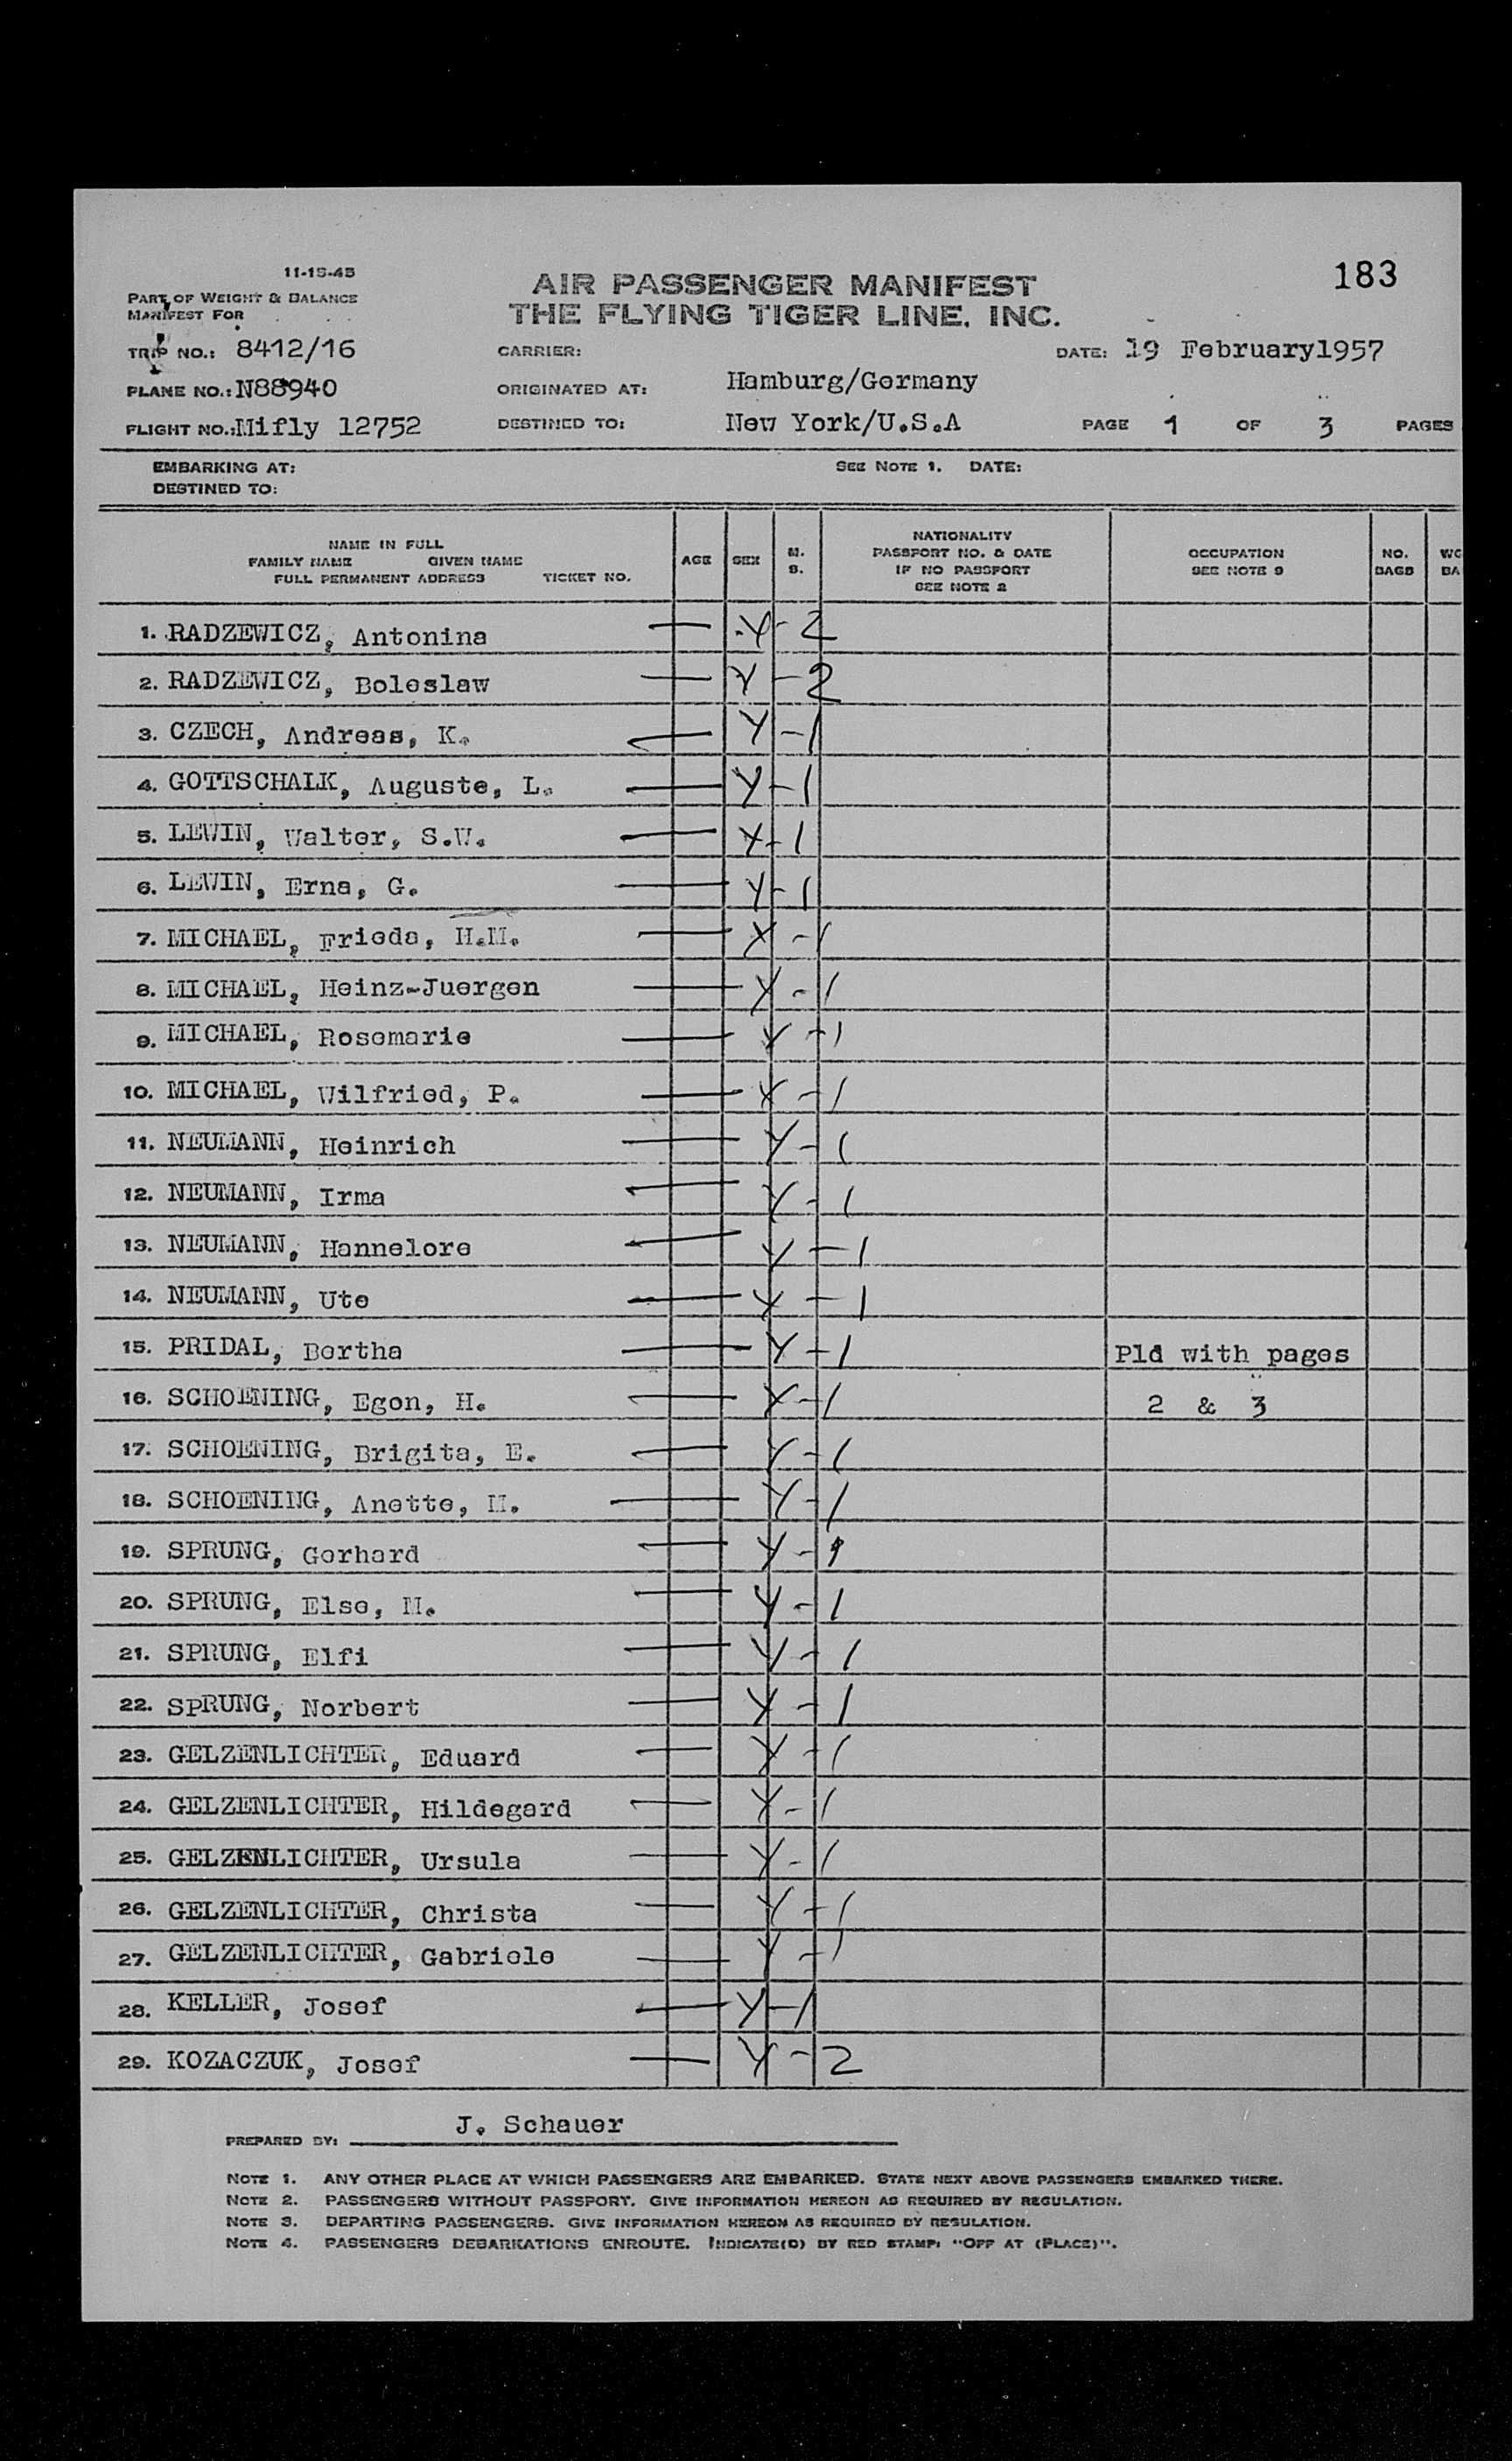 11-15-45
183
PART OF WEIGHT & BALANCE
MANIFEST FOR
AIR PASSENGER MANIFEST
THE FLYING TIGER LINE, INC.
TRIP NO.: 8412/16 CARRIER: DATE: 19 February1957
PLANE NO.: N88940 ORIGINATED AT: Hamburg/Germany
FLIGHT NO.: Mifly 12752 DESTINED TO: New York/U.S.A PAGE 1 OF 3 PAGES
EMBARKING AT: SEE NOTE 1. DATE:
DESTINED TO:
NAME IN FULL
FAMILY NAME GIVEN NAME
FULL PERMANENT ADDRESS TICKET NO.
AGE
SEX
M.
S.
NATIONALITY
PASSPORT NO. & DATE
IF NO PASSPORT
SEE NOTE 2
OCCUPATION
SEE NOTE 3
NO.
BAGS
WG
BA
1. RADZEWICZ, Antonina — Y - 2
2. RADZEWICZ, Boleslaw — Y - 2
3. CZECH, Andreas, K. — Y - 1
4. GOTTSCHALK, Auguste, L. — Y - 1
5. LEWIN, Walter, S.W. — Y - 1
6. LEWIN, Erna, G. — Y - 1
7. MICHAEL, Frieda, H.M. — Y - 1
8. MICHAEL, Heinz-Juergen — Y - 1
9. MICHAEL, Rosemarie — Y - 1
10. MICHAEL, Wilfried, P. — Y - 1
11. NEUMANN, Heinrich — Y - 1
12. NEUMANN, Irma — Y - 1
13. NEUMANN, Hannelore — Y - 1
14. NEUMANN, Ute — Y - 1
15. PRIDAL, Bertha — Y - 1 Pld with pages
16. SCHOENING, Egon, H. — Y - 1 2 & 3
17. SCHOENING, Brigita, E. — Y - 1
18. SCHOENING, Anette, M. — Y - 1
19. SPRUNG, Gerhard — Y - 1
20. SPRUNG, Else, M. — Y - 1
21. SPRUNG, Elfi — Y - 1
22. SPRUNG, Norbert — Y - 1
23. GELZENLICHTER, Eduard — Y - 1
24. GELZENLICHTER, Hildegard — Y - 1
25. GELZENLICHTER, Ursula — Y - 1
26. GELZENLICHTER, Christa — Y - 1
27. GELZENLICHTER, Gabriele — Y - 1
28. KELLER, Josef — Y - 1
29. KOZACZUK, Josef — Y - 2
PREPARED BY: J. Schauer
NOTE 1. ANY OTHER PLACE AT WHICH PASSENGERS ARE EMBARKED. STATE NEXT ABOVE PASSENGERS EMBARKED THERE.
NOTE 2. PASSENGERS WITHOUT PASSPORT. GIVE INFORMATION HEREON AS REQUIRED BY REGULATION.
NOTE 3. DEPARTING PASSENGERS. GIVE INFORMATION HEREON AS REQUIRED BY REGULATION.
NOTE 4. PASSENGERS DEBARKATIONS ENROUTE. INDICATE(D) BY RED STAMP: "OFF AT (PLACE)".